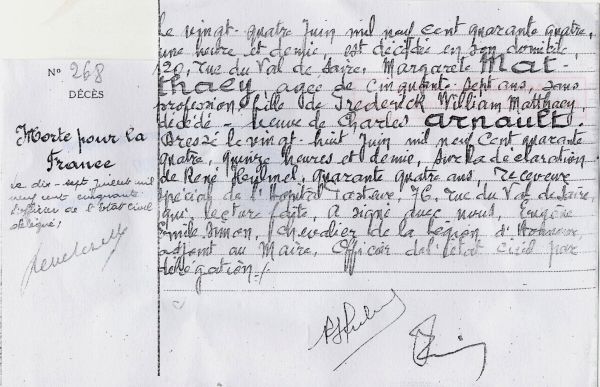 N° 268
DÉCÈS
Morte pour la
France
Le dix-sept juillet mil
neuf cent cinquante.
l'officier de l'Etat Civil
délégué,
Le vingt-quatre Juin mil neuf cent quarante quatre,
une heure et demie, est décédée en son domicile
120, rue du Val de Saire, Margarete Mat-
thaey, agée de Cinquante-sept ans, sans
profession, fille de Frederick William Matthaey,
décédé - Veuve de Charles Arnault.
Dressé le vingt-huit Juin mil neuf Cent quarante
quatre, quinze heures et demie, sur la déclaration
de René quarante quatre ans, receveur
spécial de l'Hopital Pasteur, 76, rue du Val de Saire,
qui, lecture faite, a signé avec nous, Eugène
Emile Simon, Chevalier de la Légion d'Honneur,
adjoint au Maire, Officier de l'état Civil par
délégation./.